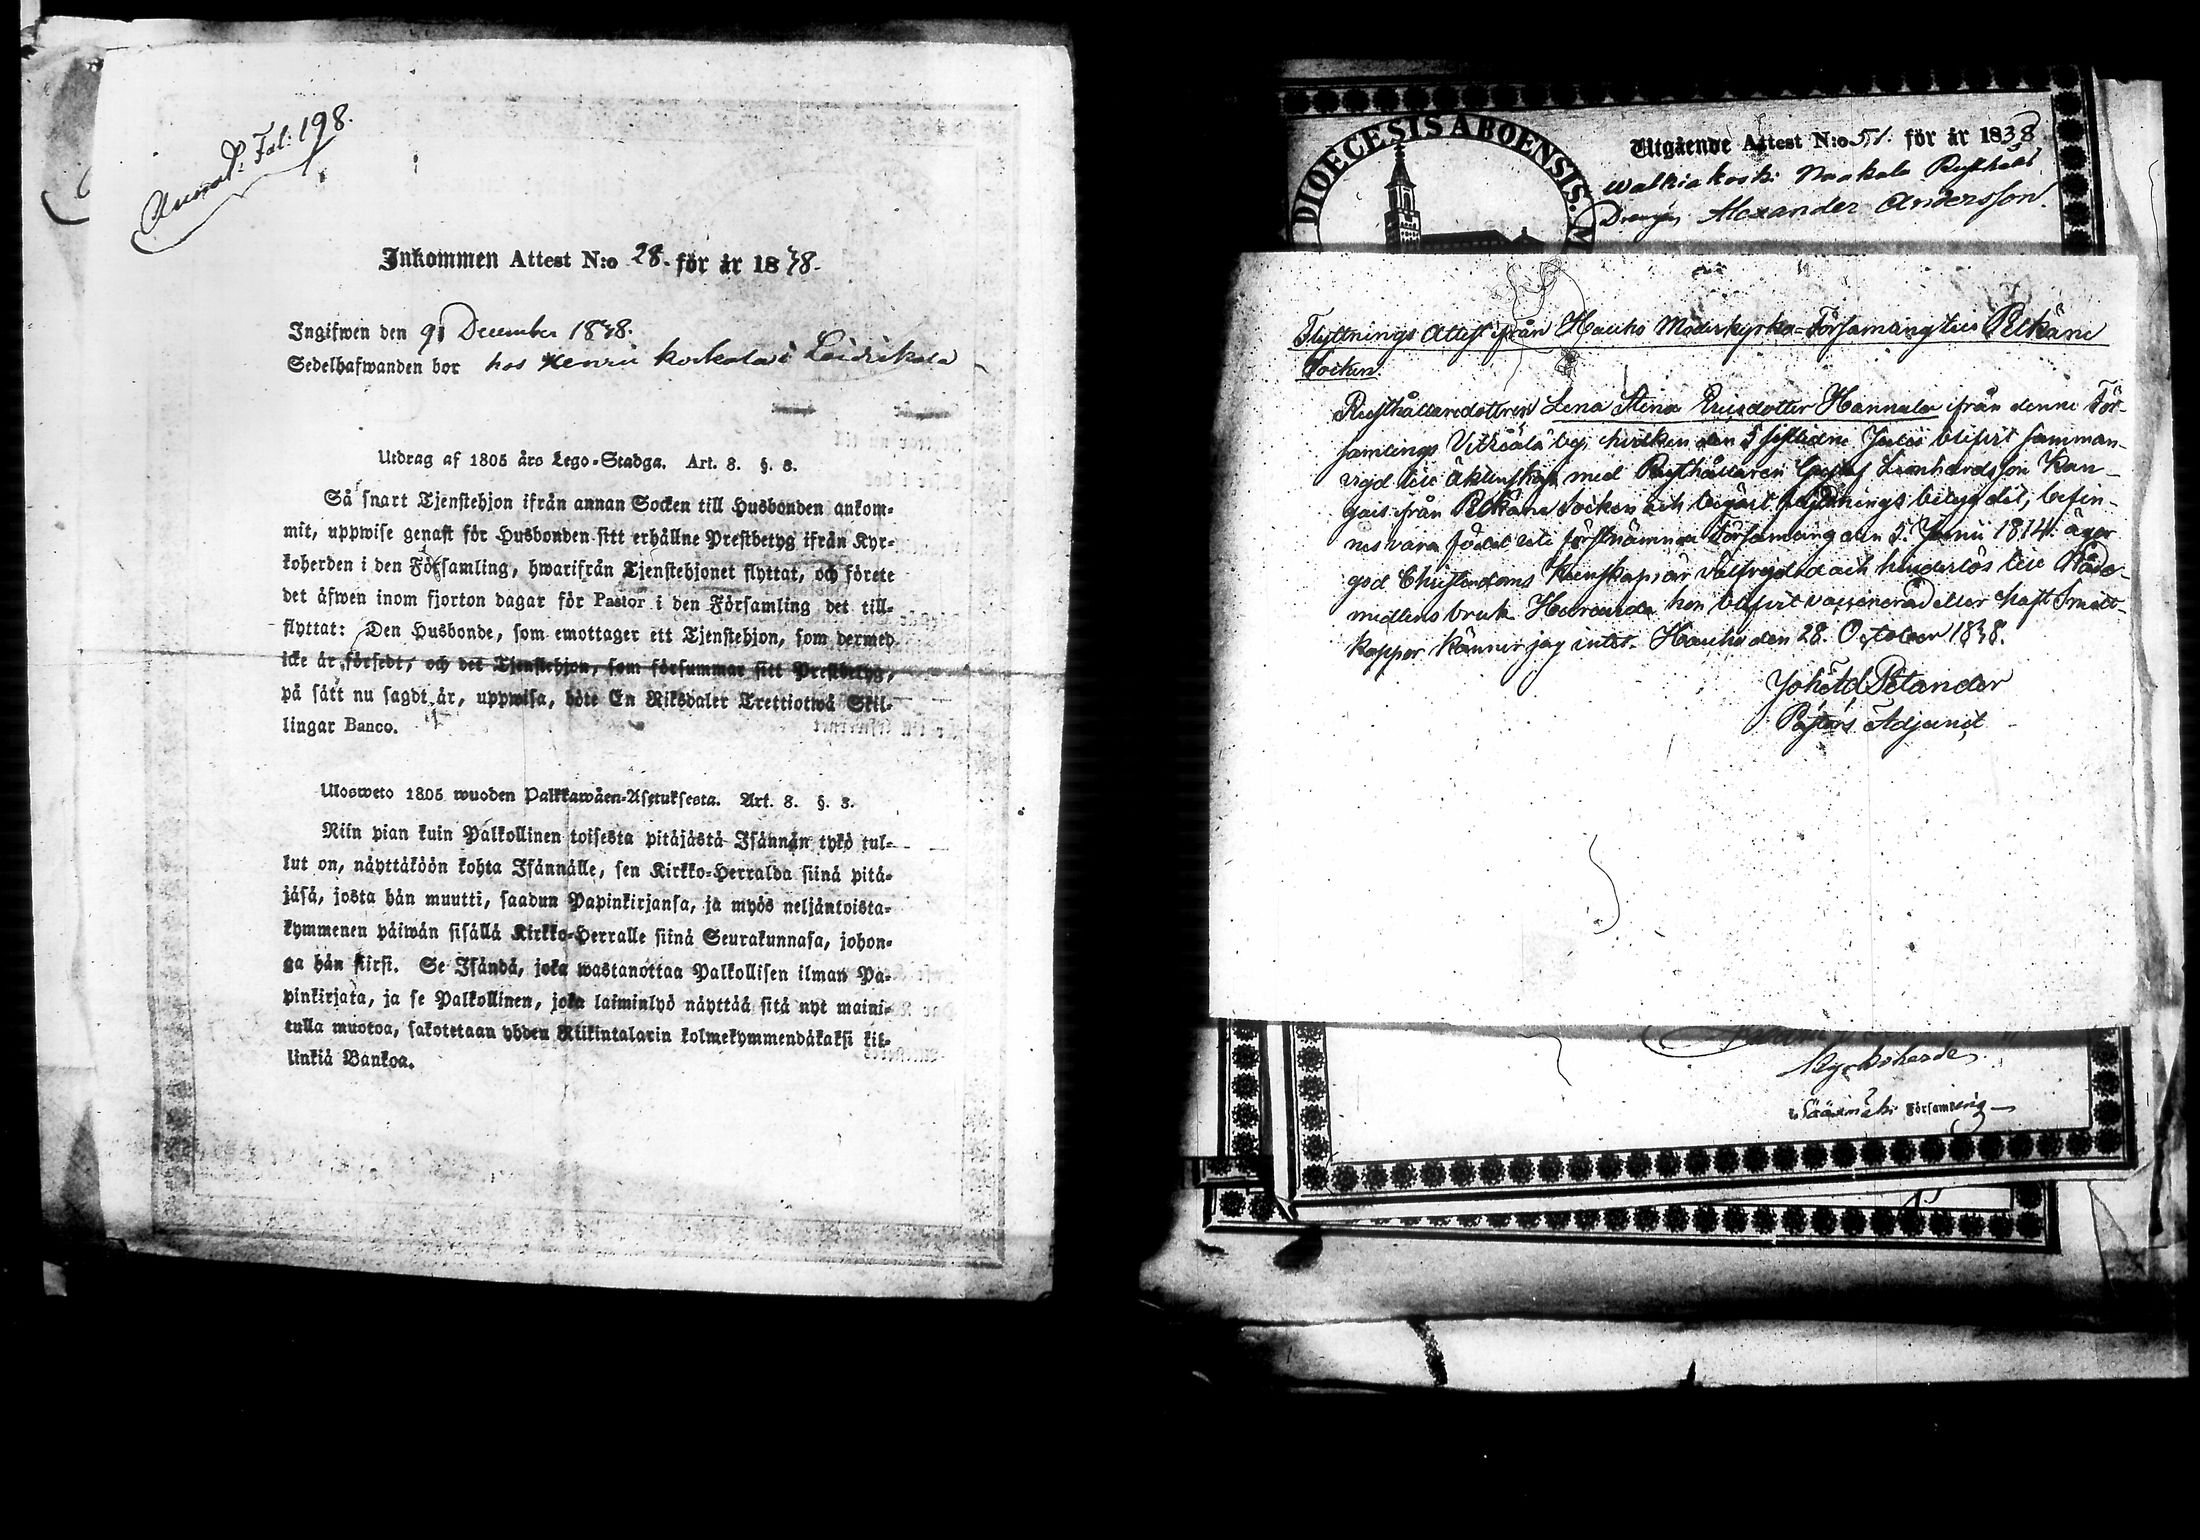 Annot. Fol. 198.
Inkommen Attest N:o 28. för år 1838.
Ingifwen den 9 December 1838.
Sedelhafwanden bor hos Henric Korkala i Laidikala
Utdrag af 1805 års Lego-Stadga. Art. 8. §. 3.
Så snart Tjenstehjon ifrån annan Socken till Husbonden ankom-
mit, uppwise genast för Husbonden sitt erhållne Prestbetyg ifrån Kyr-
koherden i den Församling, hwarifrån Tjenstehjonet flyttat, och förete
det äfwen inom fjorton dagar för Pastor i den Församling det till-
flyttat: Den Husbonde, som emottager ett Tjenstehjon, som dermed
icke är försedt, och det Tjenstehjon, som försummar sitt Prestbetyg,
på sätt nu sagdt är, uppwisa, böte En Riksdaler Trettiotwå Skil-
lingar Banco.
Ulosweto 1805 wuoden Palkkawäen-Asetuksesta. Art. 8. §. 3.
Niin pian kuin Palkollinen toisesta pitäjästä Isännän tykö tul-
lut on, näyttäköön kohta Isännälle, sen Kirkko-Herralda siinä pitä-
jäsä, josta hän muutti, saadun Papinkirjansa, ja myös neljäntoista-
kymmenen päiwän sisällä Kirkko-Herralle siinä Seurakunnasa, johon-
ga hän siirsi. Se Isändä, joka wastanottaa Palkollisen ilman Pa-
pinkirjata, ja se Palkollinen, joka laiminlyö näyttää sitä nyt maini-
tulla muotoa, sakotetaan yhden Riikintalarin kolmekymmendäkaksi kil-
linkiä Bankoa.
DIOECESIS ABOENSIS.
Utgående Attest N:o 51. för år 1838
Walkiakoski Naakala Rusthåll
Drengen Alexander Andersson.
Flyttnings Attest ifrån Hauho Moderkyrko-Församling till Pelkäne
Socken.
Rusthållaredottren Lena Stina Ericsdotter Hannula ifrån denne För-
samlings Vitziälä by, hvilken den 5 sistledne Julii blifvit samman-
vigd till äktenskap med Rusthållaren Gustaf Leonhardsson Kan-
gais ifrån Pelkäne Socken och begärt flyttnings betyg dit, befin-
nes vara född uti förstnämnda Församling den 5. Junii 1814. äger
god Christendoms Kunskap, är välfrejdad och hinderlös till Nåde-
medlens bruk. Huruvida hon blifvit vaccinerad eller haft Smått-
koppor känner jag intet. Hauho den 28. October 1838.
Joh. Petander
Pastors Adjunct
Kyrkoherde
i Sääxmäki Församling